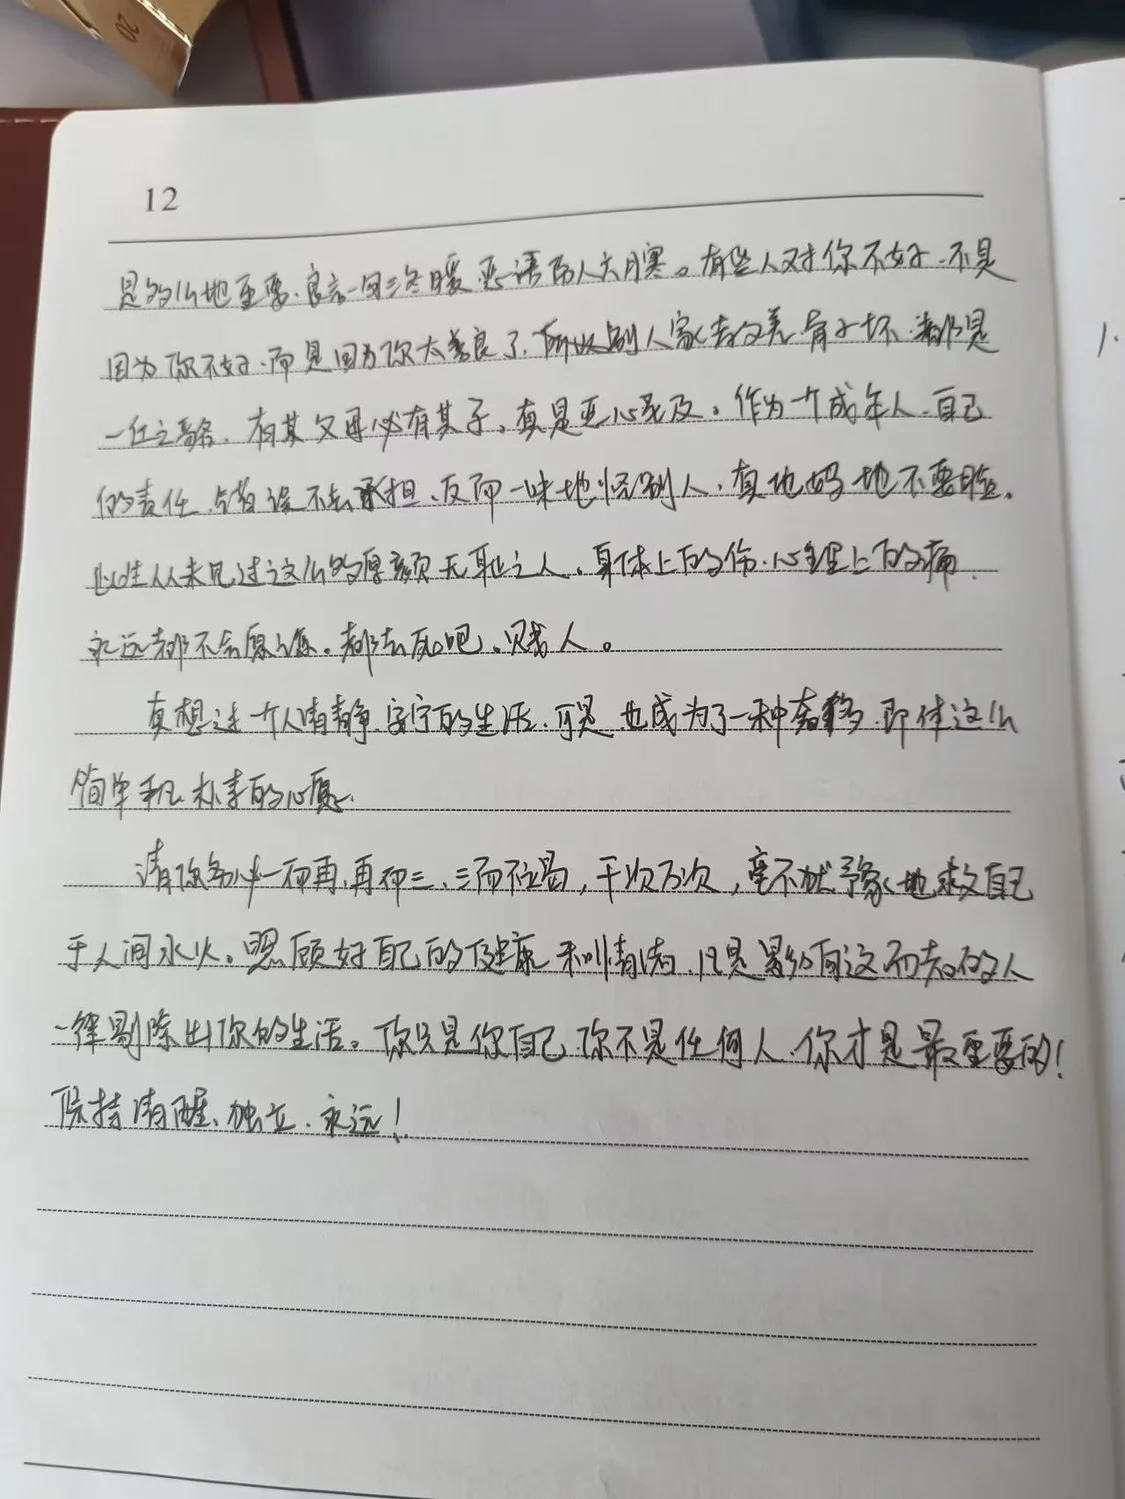 12
是多么地重要、良言一句三冬暖,恶语伤人六月寒。有些人对你不好、不是
因为你不好、而是因为你太善良了、所以别人家 都是
一丘之貉、有其父母必有其子、真是恶心死及。作为一个成年人、自己
的责任、错误不去承担、反而一味地怪别人、真他妈地不要脸。
此生从未见过这么的厚颜无耻之人、身体上的伤、心理上的痛、
永远都不会原谅。都去死吧、贱人。
真想过一个人清静、安宁的生活、可是也成为了一种奢侈、即使这么
简单和朴素的心愿、
请你务必一而再、再而三、三而不竭,千次万次,毫不犹豫地救自己
于人间水火。照顾好自己的健康和情绪、凡是影响这两者的人
一律剔除出你的生活。你只是你自己、你不是任何人、你才是最重要的!
保持清醒、独立、永远!
1.